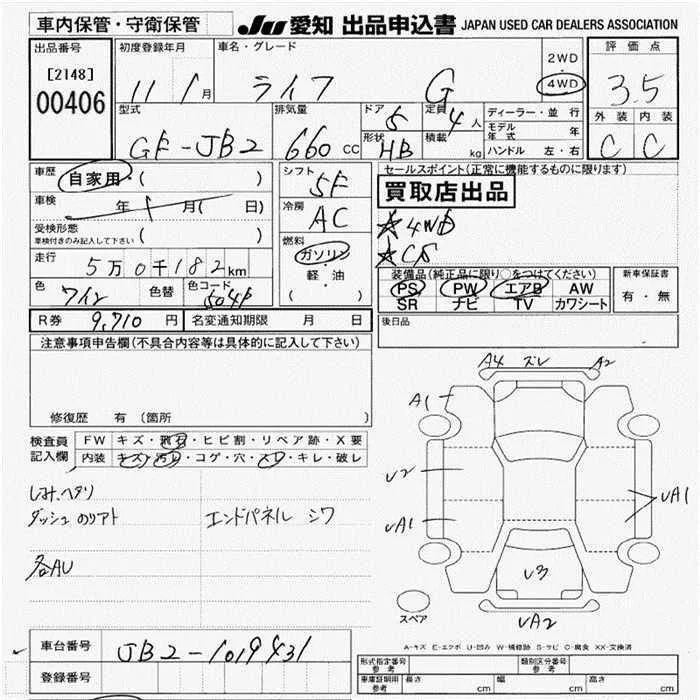 車内保管・守衛保管
JU 愛知 出品申込書 JAPAN USED CAR DEALERS ASSOCIATION
出品番号
[2148]
00406
初度登録年月
11 / 1 月
車名・グレード
ライフ G
2WD
4WD
評価点
3.5
外装 内装
C C
型式
GF-JB2
排気量
660 cc
ドア 5
形状 HB
定員 4 人
積載 kg
ディーラー・並行
モデル年式 年
ハンドル 左・右
車歴 自家用・( )
車検 年 月( 日)
受検形態
車検付きのみ記入して下さい ( )
走行 5万0千182km
色 ワイン 色替 色コード
シフト 5F
冷房 AC
燃料
ガソリン
軽・油
( )
セールスポイント(正常に機能するものに限ります)
買取店出品
☆4WD
装備品(純正品に限り○をつけてください)
PS PW エアB AW
SR ナビ TV カワシート
新車保証書
有・無
R券 9,710 円 名変通知期限 月 日
後日品
注意事項申告欄(不具合内容等は具体的に記入して下さい)
修復歴 有(箇所 )
検査員記入欄
FW キズ・飛石・ヒビ割・リペア跡・X要
内装 キズ・汚れ・コゲ・穴・スレ・キレ・破レ
シミ、ヘタリ
ダッシュ のリアト エンドパネル シワ
各AU
A4 ズレ A2
A1
U2
UA1
UA1
U3
UA2
スペア
A-キズ E-エクボ U-凹み W-補修跡 S-サビ C-腐食 XX-交換済
車台番号 JB2-1019431
登録番号
形式指定番号 参考 類別区分番号 参考
車庫証明用 参考 長さ cm 幅 cm 高さ cm